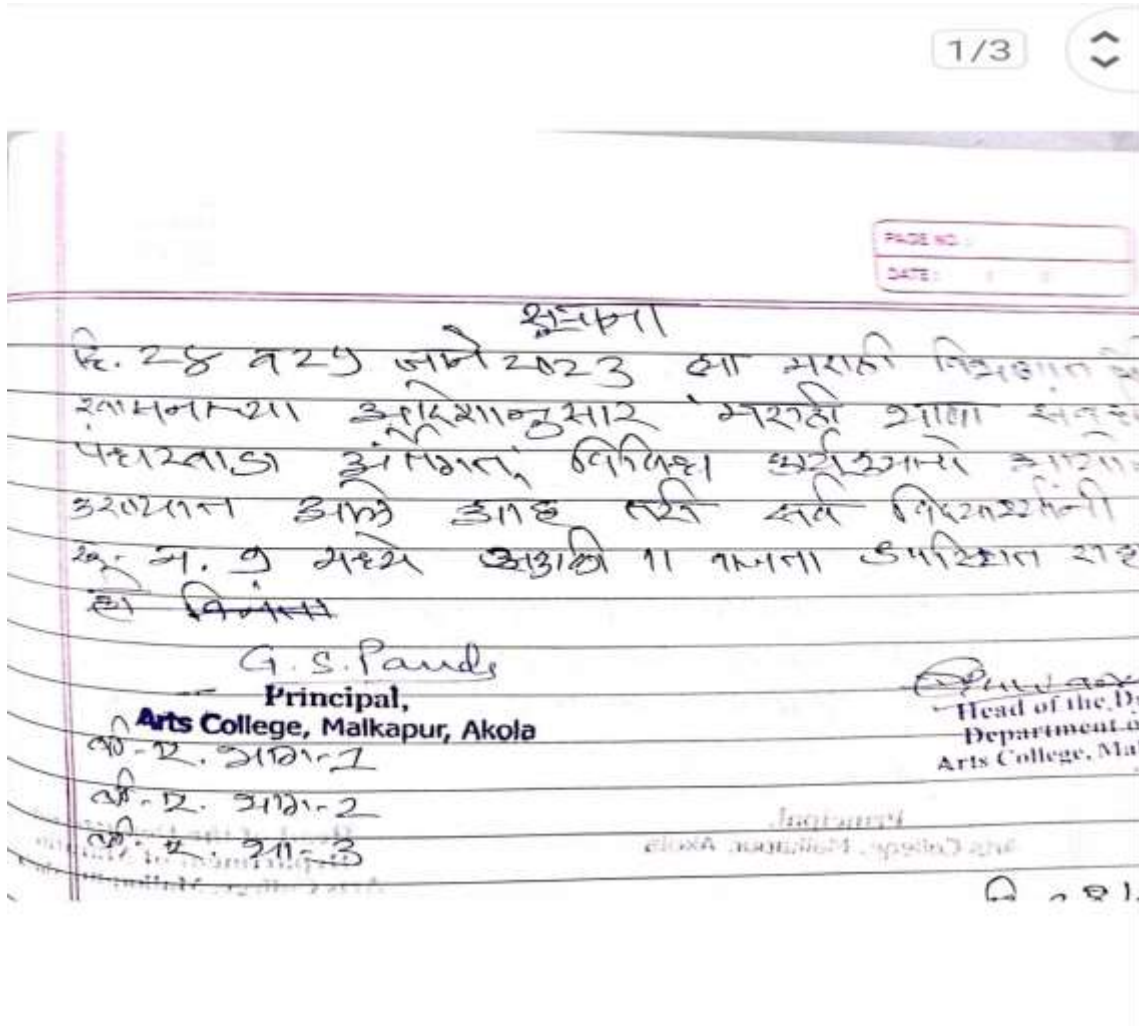 1/3
PAGE NO :
DATE :
सूचना
दि. २४ व २५ जाने २०२३ ला मराठी विभागात
शासनाच्या आदेशानुसार मराठी भाषा
पंधरवाडा अंतर्गत, विविध
आले आहे तरी सर्व विद्यार्थ्यांनी
मध्ये सकाळी 11 वाजता उपस्थित
ही विनंती
G. S. Pande
Principal,
Arts College, Malkapur, Akola
Head of the D
Department o
Arts College, Mal
बी. ए. भाग-1
बी. ए. भाग-2
बी. ए. भाग-3